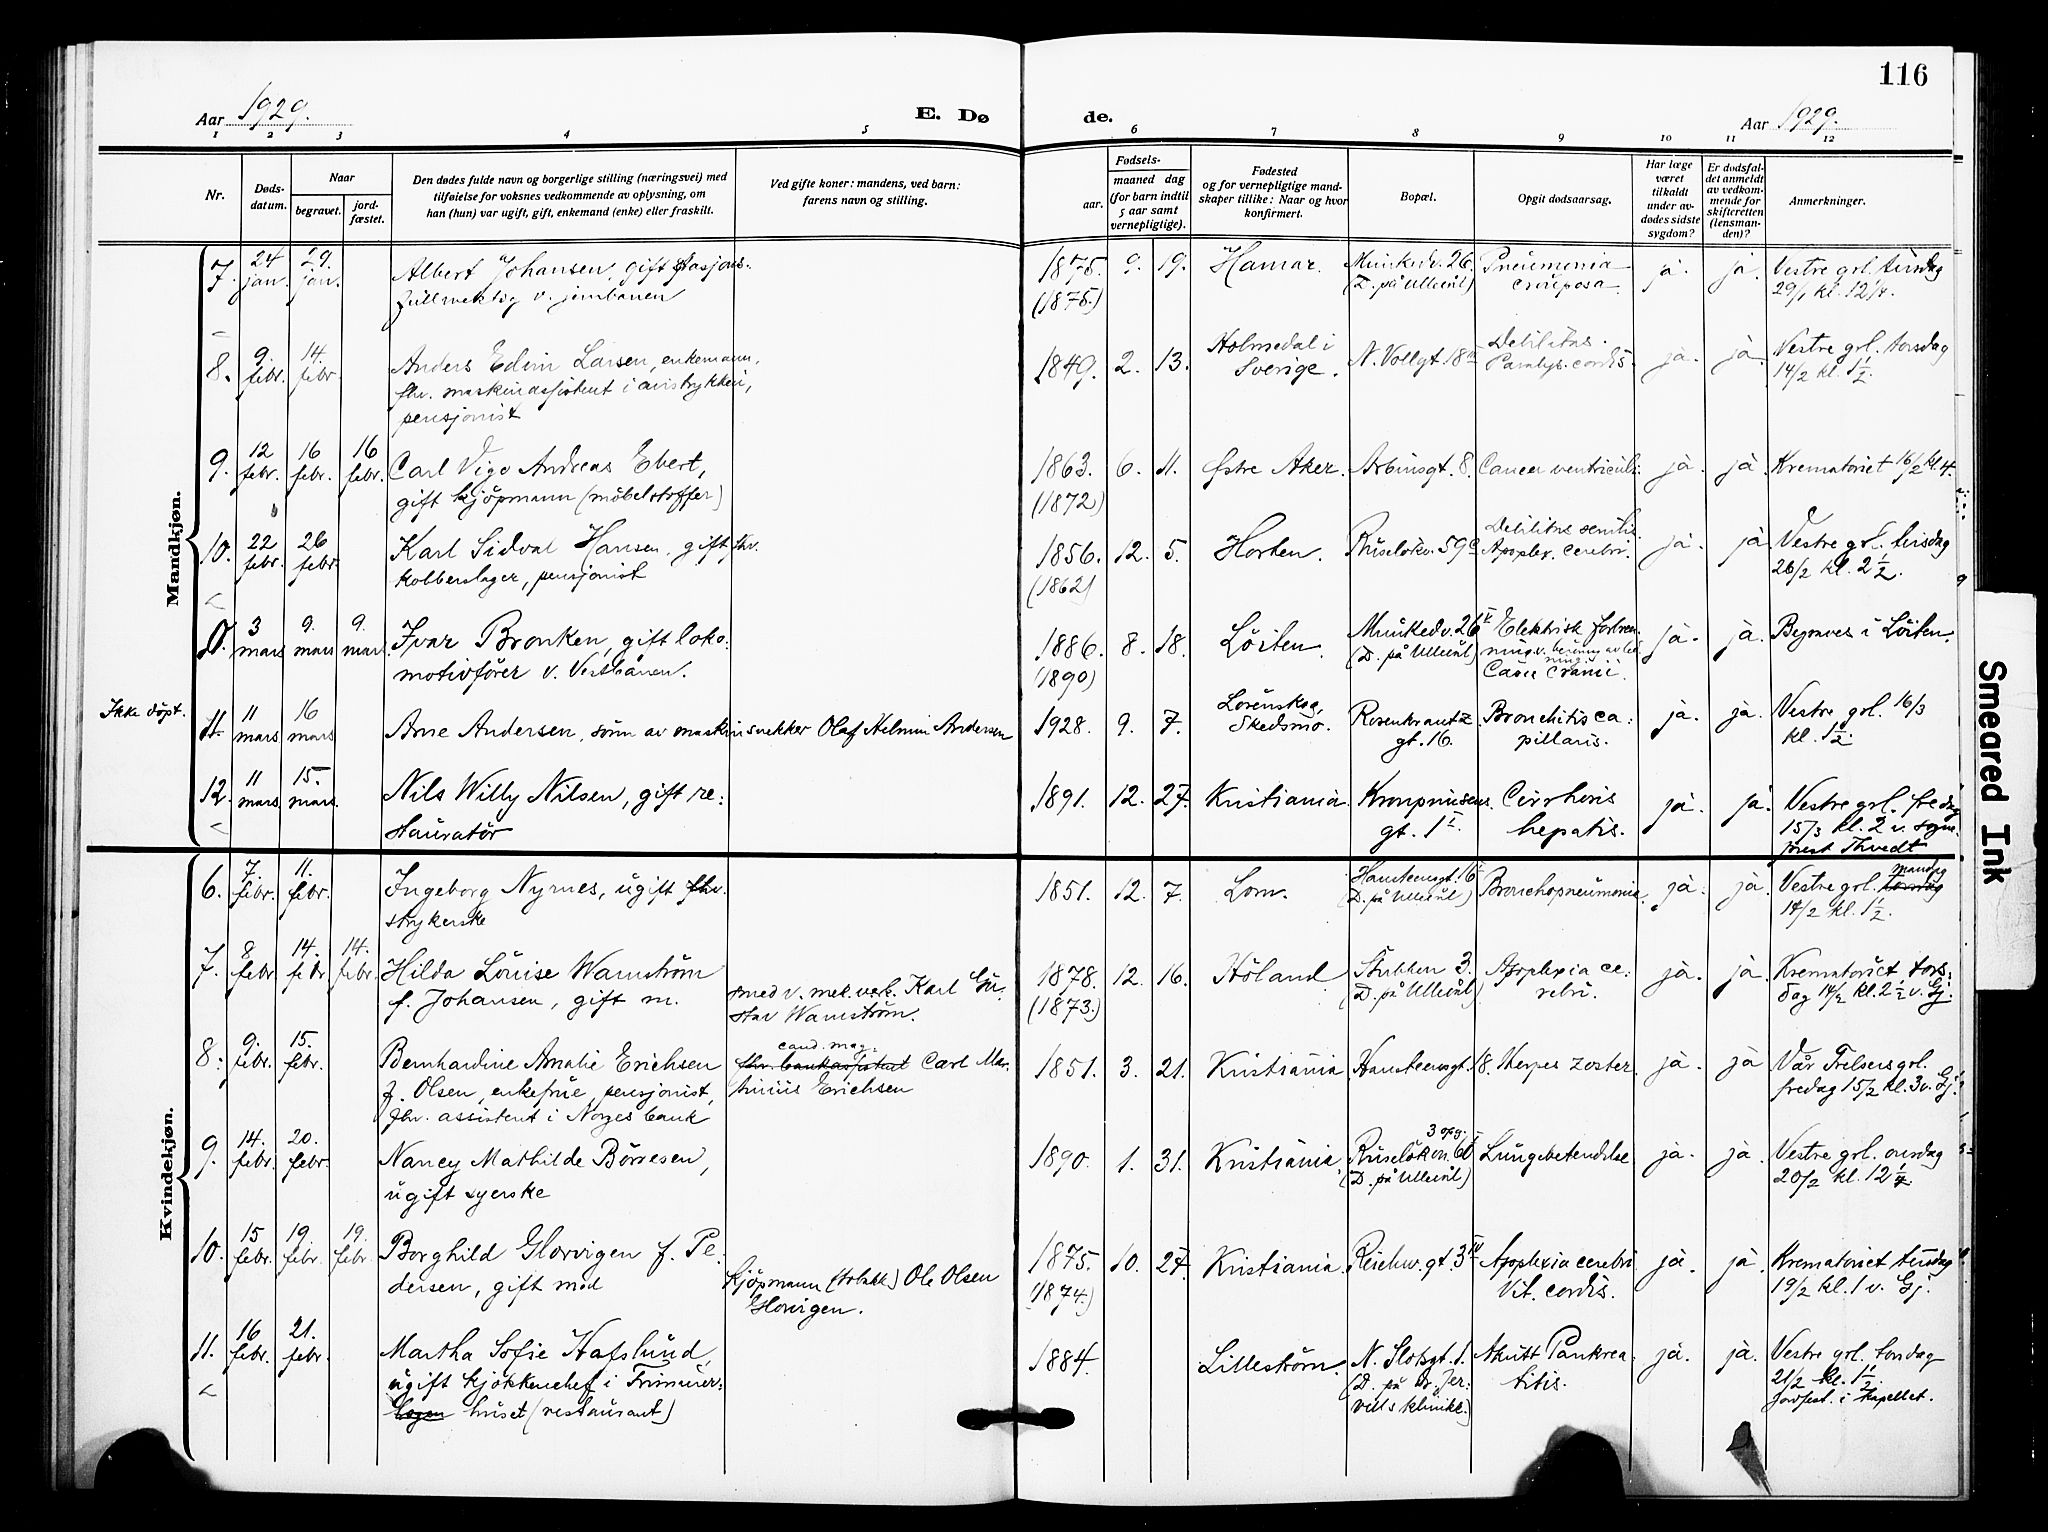 116
Aar 1929.
E. Dø
de.
Aar 1929.
1 2 3 4 5 6 7 8 9 10 11 12
Nr.
Døds-
datum.
Naar
begravet.
jord-
fæstet.
Den dødes fulde navn og borgerlige stilling (næringsvei) med
tilføielse for voksnes vedkommende av oplysning, om
han (hun) var ugift, gift, enkemand (enke) eller fraskilt.
Ved gifte koner: mandens, ved barn:
farens navn og stilling.
Fødsels-
aar.
maaned dag
(for barn indtil
5 aar samt
vernepligtige).
Fødested
og for vernepligtige mand-
skaper tillike: Naar og hvor
konfirmert.
Bopæl.
Opgit dødsaarsag.
Har læge
været
tilkaldt
under av-
dødes sidste
sygdom?
Er dødsfal-
det anmeldt
av vedkom-
mende for
skifteretten
(lensman-
den)?
Anmerkninger.
Mandkjøn.
7. 24 jan. 29. jan. Albert Johansen, gift stasjons-
fullmektig v. jernbanen
1875. 9. 19. Hamar. Munkedv. 26. Pneumonia ja. ja. Vestre grl. tirsdag
(1875) (D. på Ullevål) crouposa. 29/1 kl. 12 1/4.
8. 9. febr. 14. febr. Anders Edvin Larsen, enkemann,
fhv. maskinassistent i avistrykkeri,
pensjonist
1849. 2. 13. Holmedal i N. Vollgt. 18 Debilitas. ja. ja. Vestre grl. torsdag
Sverige. Paralys. cordis. 14/2 kl. 1 1/2.
9. 12 febr. 16 febr. 16 febr. Carl Vigo Andreas Ebert,
gift kjøpmann (møbelstoffer)
1863. 6. 11. Østre Aker. Arbinsgt. 8. Cancer ventriculi. ja. ja. Krematoriet 16/2 kl. 4.
(1872)
10. 22 febr. 26 febr. Karl Sidval Hansen, gift fhv.
kobberslager, pensjonist
1856. 12. 5. Horten. Ruseløkv. 59 Debilitas senilis. ja. ja Vestre grl. tirsdag
(1862) Apoplex. cerebri. 26/2 kl. 2 1/2.
3 mars 9. mars 9. mars Ivar Bronken, gift loko-
motivfører v. Vestbanen.
1886. 8. 18. Løiten. Munkedv. 26 Elektrisk forbren- ja. ja. Begraves i Løiten.
(1890) (D. på Ullevål) ning v. berøring av led-
ning.
Caries cranii.
Ikke døpt.
11. 11 mars 16 mars Arne Andersen, sønn av maskinsnekker Olaf Helmin Andersen
1928. 9. 7. Lørenskog, Rosenkrantz Bronchitis ca- ja. ja. Vestre grl. 16/3
Skedsmo. gt. 16. pillaris. kl. 1 1/2.
12. 11 mars 15. mars. Nils Willy Nilsen, gift re-
stauratør
1891. 12. 27. Kristiania. Kronprinsens Cirrhosis ja. ja. Vestre grl. fredag
gt. 1 I. hepatis. 15/3 kl. 2 v. sogne-
prest Thvedt
Kvindekjøn.
6. 7. febr. 11. febr. Ingeborg Nyrnes, ugift fhv.
strykerske
1851. 12. 7. Lom. Hansteensgt. 16 Bronchopneumonia. ja. ja. Vestre grl. torsdag mandag
(D. på Ullevål) 14/2 kl. 1 1/2.
7. 8 febr. 14. febr. 14. febr. Hilda Louise Wamstrøm
f. Johansen, gift m. smed v. mek. verk. Karl Gu-
stav Wamstrøm.
1878. 12. 16. Høland Stubben 3. Apoplexia ce- ja. ja Krematoriet tors-
(1873.) (D. på Ullevål) rebri. dag 14/2 kl. 2 1/2 v. Gj.
8. 9. febr. 15. febr. Bernhardine Amalie Erichsen
f. Olsen, enkefrue, pensjonist,
fhv. assistent i Norges bank
cand. mag.
fhv. bankassistent Carl Mar-
tinius Erichsen
1851. 3. 21. Kristiania Hansteensgt. 18. Herpes zoster. ja. ja Vår Frelsers grl.
fredag 15/2 kl. 3 v. Gj.
9. 14. febr. 20. febr. Nancy Mathilde Børresen,
ugift syerske
1890. 1. 31. Kristiania Ruseløkvn. 61 3 opg. Lungebetendelse ja. ja. Vestre grl. onsdag
(D. på Ullevål) 20/2 kl. 12 1/4.
10. 15 febr. 19. febr 19. febr. Borghild Glorvigen f. Pe-
dersen, gift med Kjøpmann (tobakk) Ole Olsen
Glorvigen.
1875. 10. 27. Kristiania. Reichw. gt. 3 Apoplexia cerebri ja. ja. Krematoriet tirsdag
(1874.) Vit. cordis. 19/2 kl. 1 v. Gj.
11. 16 febr. 21. febr. Martha Sofie Hafslund,
ugift kjøkkenchef i Frimurer-
logen huset (restaurant)
1884. Lillestrøm. N. Slotsgt. 1. Akutt Pankrea- ja. ja. Vestre grl. torsdag
(D. på Dr. Jer- titis. 21/2 kl. 1 1/2.
vells klinikk.) Jordfest. i kapellet.
Smeared Ink